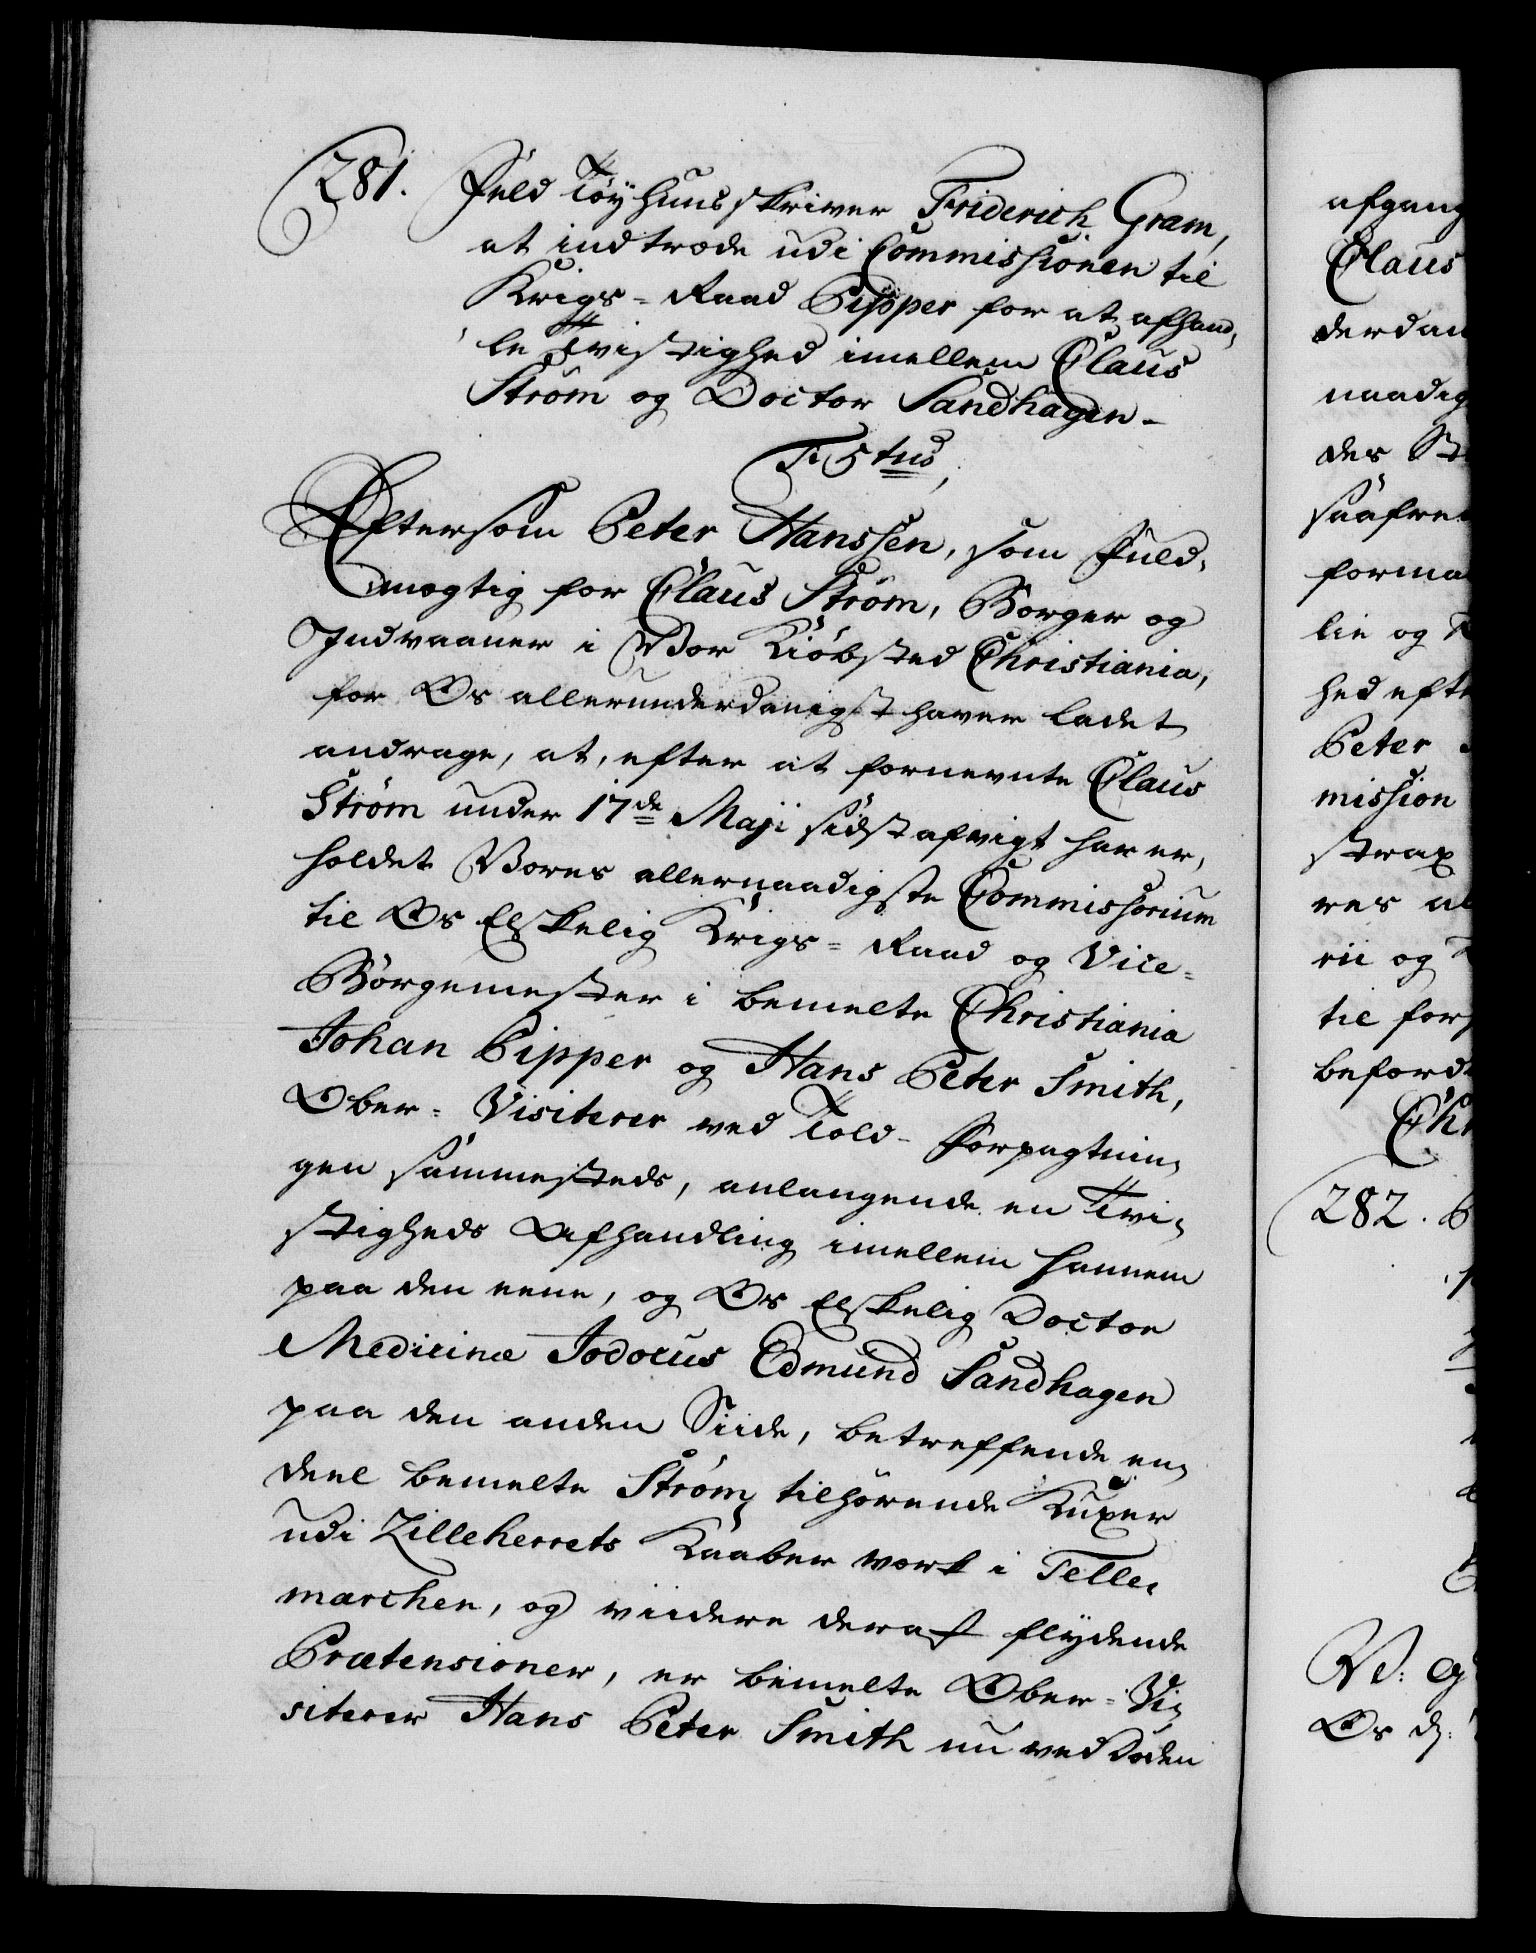 281. Fuld Tøyhuusskriver Friderich Gram,
at indtræde udi Commissionen til
Krigs-Raad Pipper for at afhand,
le Tvistighed imellem Claus
Strøm og Doctor Sandhagen-
F 5tus,
Eftersom Peter Hanssen, som Fuld,
mægtig for Claus Strøm, Borger og
Indvaaner i Vor Kiöbsted Christiania,
for Os allerunderdanigst haver ladet
andrage, at, efter at fornevnte Claus
Strøm under 17de Maji sidst afvigt har er,
holdet Vores allernaadigste Commissorium
til Os Elskelig Krigs-Raad og Vice-
Borgemester i bemelte Christiania
Johan Pipper og Hans Peter Smith,
Ober-Visiterer ved Told-Forpagtnin,
gen sammesteds, anlangende en Tvi,
stigheds Afhandling imellem hannem
paa den eene, og Os Elskelig Doctor
Medicinæ Jodocus Edmund Sandhagen
paa den anden Siide, betreffende en,
deel bemelte Strøm tilhörende Kuxer
udi Zilleherrets Kaaber værk i Telle,
marchen, og viidere deraf flydende
Prætensioner, er bemelte Ober-Vi,
siterer Hans Peter Smith nu ved Döden
afgang
Claus
derdan
naadig
des St
saafre
forma
lie og
hed efte
Peter
mission
strax
res al
rii og
til for
beford
Ch
282.
Os